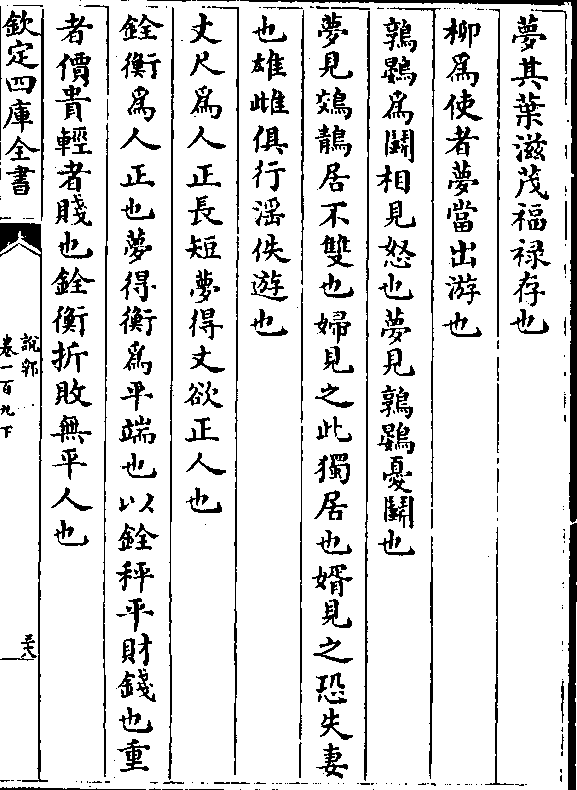 夢其葉滋茂福禄存也
柳爲使者夢當出游也
鶉鷃爲鬭相見怒也夢見鶉鷃憂鬭也
夢見鵁鶄居不雙也婦見之此獨居也婿見之恐失妻
也雄雌俱行滛佚遊也
丈尺爲人正長短夢得丈欲正人也
銓衡爲人正也夢得衡爲平端也以銓秤平財錢也重
者價貴輕者賤也銓衡折敗無平人也
欽定四庫全書
說郛
卷一百九下